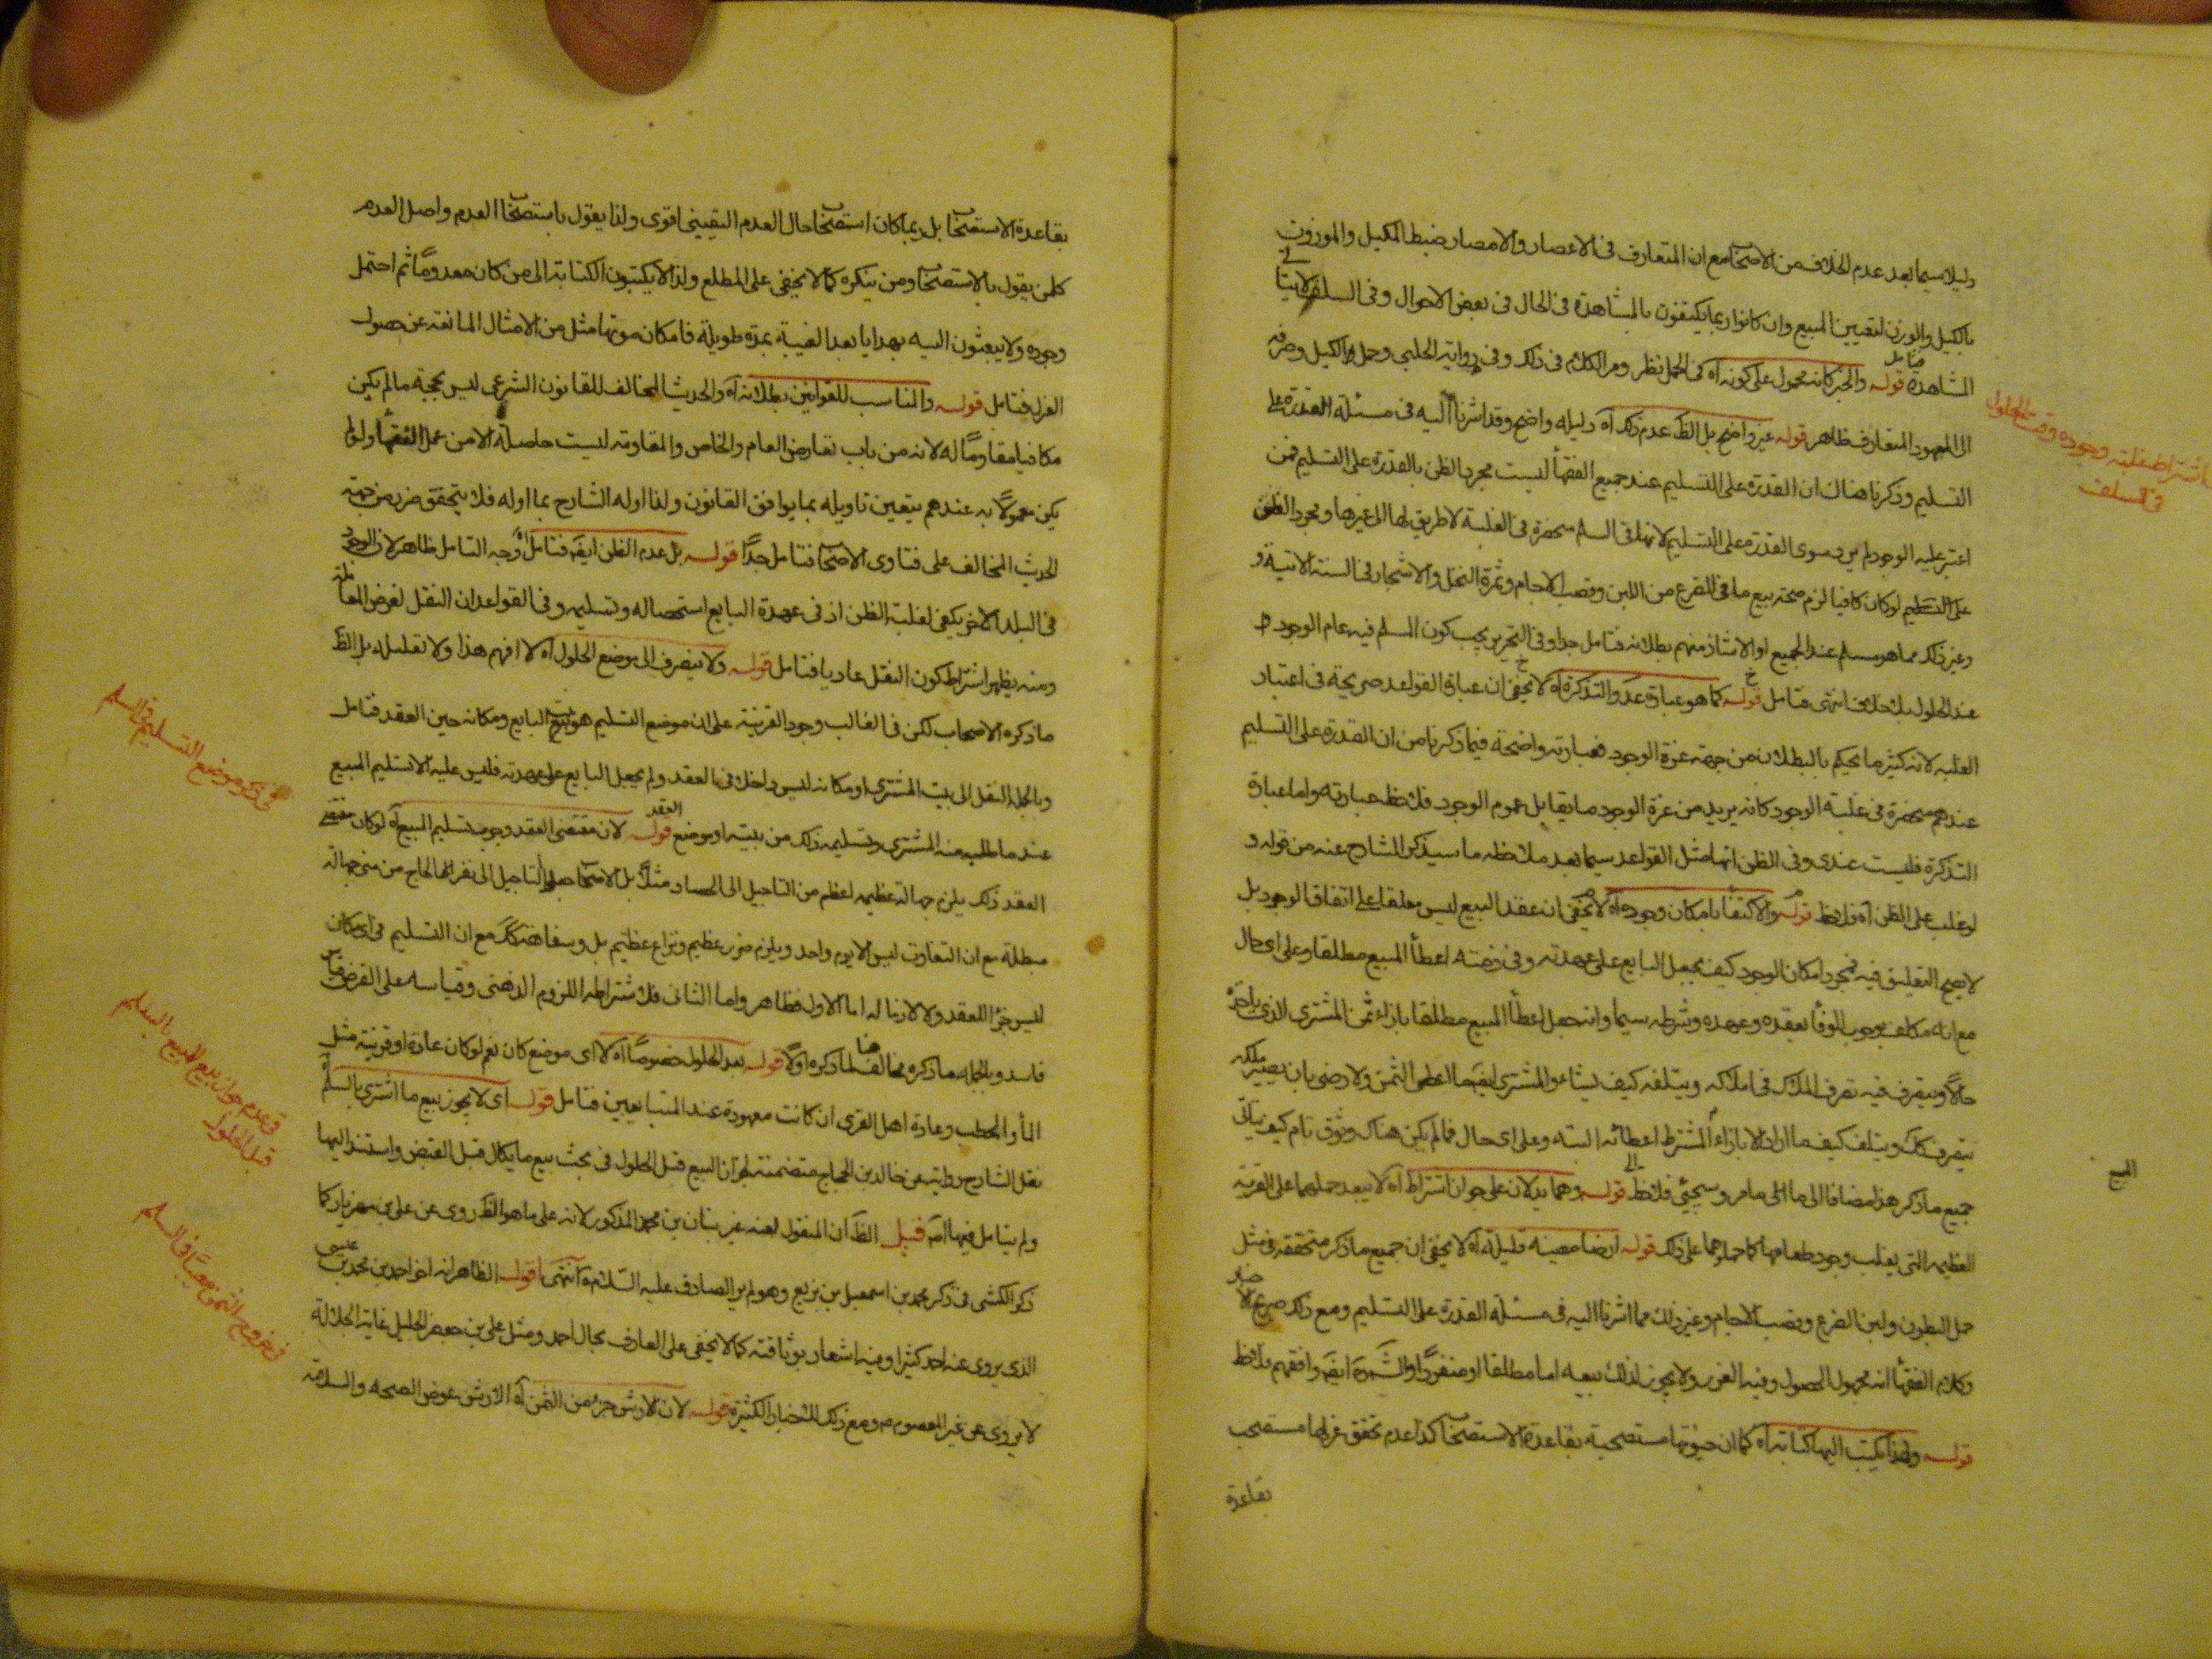 دليلا سيما بعد عدم الخلاف من الاصحاب مع ان المتعارف فى الاعصار والامصار ضبط المكيل والموزون
بالكيل والوزن لتعيين المبيع وان كانوا ربما يكتفون بالمشاهدة فى الحال فى بعض الاحوال وفى السلف لا يتأتى
المشاهدة فتامل قوله والخبر كانه محمول على كونه آه فى الحمل نظر ومر الكلام فى ذلك وفى رواية الحلبى وحمل الكيل وصرفه
الى المعهود المتعارف ظاهر قوله غير واضح بل الظ عدم ذلك آه دليله واضح وقد اشرنا اليه فى مسئلة القدرة على
التسليم وذكرنا هناك ان القدرة على التسليم عند جميع الفقهأ ليست مجرد الظن بالقدرة على التسليم فمن
اعتبر غلبة الوجود لم يرد سوى القدرة على التسليم لانها فى السلم منحصرة فى الغلبة لا طريق لها الى غيرها ومجرد الظن
على التسليم لو كان كافيا لزم صحة بيع ما فى الضرع من اللبن وقصب الاجام وثمرة النخل والاشجار فى السنة الاتية و
وغير ذلك مما هو مسلم عند الجميع او الا شاذ منهم بطلانه فتامل جدا وفى التحرير يجب كون المسلم فيه عام الوجود
عند الحلول بلا خلاف انتهى فتامل قوله كما هو عبارة عد والتذكرة آه لا يخفى ان عبارة القواعد صريحة فى اعتبار
الغلبة لانه كثيرا ما يحكم بالبطلان من جهة عزة الوجود فعبارته واضحة فيما ذكرنا من ان القدرة على التسليم
عندهم منحصرة فى غلبة الوجود كانه يريد من عزة الوجود ما يقابل عموم الوجود فلاحظ عبارته واما عبارة
التذكرة فليست عندى وفى الظن انها مثل القواعد سيما بعد ملاحظة ما سيذكر الشارح عنه من قوله و
لو غلب على الظن آه فلاحظ قوله والاكتفأ بامكان وجوده آه لا يخفى ان عقد البيع ليس معلقا على اتفاق الوجود بل
لا يصح التعليق فيه فمجرد امكان الوجود كيف يجعل البايع على عهدته وفى ذمته اعطأ المبيع مطلقا وعلى اى حال
مع انه مكلف بوجوب الوفأ بعقده وعهده وشرطه سيما وانه جعل اعطأ المبيع مطلقا بازاء ثمن المشترى الذى ياخذه
حالا ويتصرف فيه تصرف الملاك فى املاكه ويتلفه كيف يشاء والمشترى ايضا ما اعطى الثمن ولا رضى بان يصير ملكه
يتصرف كك ويتلف كيف ما اراد الا بازاء المشترط اعطائه البتة وعلى اى حال فما لم يكن هناك وثوق تام كيف يتأتى
جميع ما ذكر هذا مضافا الى ما مر وسيجئى فلاحظ قوله وهما يدلان على جواز اشتراط آه لا يبعد حملهما على القرية
العظيمة التى يغلب وجود طعامها كما حملوهما على ذلك قوله ارضا معينة قليلة آه لا يخفى ان جميع ما ذكر متحققة فى مثل
حمل البطون ولبن الضرع وقصب الاجام وغير ذلك مما اشرنا اليه فى مسئلة القدرة على التسليم ومع ذلك صريح الاخبار
وكلام الفقهأ انه مجهول الحصول وفيه الغرر ولا يجوز لذلك بيعه اما مطلقا او منفردا والش ره ايض وافقهم فلاحظ
قوله ولهذا يكتب اليها كتابة آه كما ان حيوتها مستصحبة بقاعدة الاستصحاب كذا عدم تحقق عزلها مستصحب
بقاعدة
اشتراط غلبة وجوده وقت الحلول
فى السلف
المبيع
بقاعدة الاستصحاب بل ربما كان استصحاب حال العدم اليقينى اقوى ولذا يقول باستصحاب العدم واصل العدم
كل من يقول بالاستصحاب ومن ينكره كما لا يخفى على المطلع ولذا لا يكتبون الكتابة الى من كان معدوما ثم احتمل
وجوده ولا يبعثون اليه بهدايا بعد الغيبة بمدة طويلة فامكان موتها مثل من الامثال المانعة عن حصول
العزل فتامل قوله والمناسب للقوانين بطلانه آه والحديث المخالف للقانون الشرعى ليس بحجة ما لم يكن
مكافيا مقاوما له لانه من باب تعارض العام والخاص والمقاومة ليست حاصلة الا من عمل الفقهأ ولو لم
يكن معمولا به عندهم يتعين تاويله بما يوافق القانون ولذا اوله الشارح بما اوله فلا يتحقق ضرر من جهة
الحديث المخالف على فتاوى الاصحاب فتامل جدا قوله بل عدم الظن ايض فتامل آه وجه التامل ظاهر لان الوجود
فى البلد الاخر يكفى لغلبة الظن اذ فى عهدة البايع استحصاله وتسليمه وفى القواعد ان النقل لغرض المعاملة
ومنه يظهر اشتراط كون النقل عاديا فتامل قوله ولا ينصرف الى موضع الحلول آه لا افهم هذا ولا تعليله بل الظ
ما ذكره الاصحاب لكن فى الغالب وجود القرينة على ان موضع التسليم هو البايع ومكانه حين العقد فتامل
وبالجملة النقل الى بيت المشترى او مكانه ليس داخلا فى العقد ولم يجعل البايع على عهدته فليس عليه الا تسليم المبيع
عند ما طلب منه المشترى وتسليمه ذلك من بيته او موضع العقد قوله لان مقتضى العقد وجوب تسليم المبيع آه لو كان مقتضى
العقد ذلك يلزم جهالة عظيمة اعظم من التاجيل الى الحصاد مثلا بل الاصحاب جعلوا التاجيل الى نفر الحاج من جهالة
مبطلة مع ان التفاوت ليس الا يوم واحد ويلزم ضرر عظيم ونزاع عظيم بل وسفاهة كك مع ان التسليم فى اى مكان
ليس جزأ للعقد ولا لازما له اما الاول فظاهر واما الثانى فلاشتراطه اللزوم الذهنى وقياسه على القرض قياس
فاسد وبالجملة ما ذكره هنا مخالف لما ذكره اولا قوله بعد الحلول خصوصا آه لا اى موضع كان نعم لو كان عادة او قرينة مثل
المأ والحطب وعادة اهل القرى ان كانت معهودة عند المتبايعين فتامل قوله اى لا يجوز بيع ما اشترى بالسلم آه
نقل الشارح رواية عن خالد بن الحجاج متضمنة لجواز البيع قبل الحلول فى بحث بيع ما يكال قبل القبض واستند اليها
ولم يتامل فيها آه قيل الظ ان المنقول لعنه غير بنان بن محمد المذكور لانه على ما هو الظ روى عن على بن مهزيار كما
ذكر الكشى فى ذكر محمد بن اسمعيل بن بزيع وهو لم ير الصادق عليه السلام آه انتهى اقول الظاهر انه اخو احمد بن محمد بن عيسى
الذى يروى عنه احمد كثيرا وفيه اشعار بوثاقته كما لا يخفى على العارف بحال احمد ومثل على بن جعفر الجليل غاية الجلالة
لا يروى عن غير المعصوم ع ومع ذلك للاخبار الكثيرة قوله لان الارش جزء من الثمن آه الارش عوض الصحة والسلامة
فى ذكر موضع التسليم فى السلم
فى عدم جواز بيع المبيع بالسلم
قبل الحلول
فى خروج الثمن معيبا فى السلم